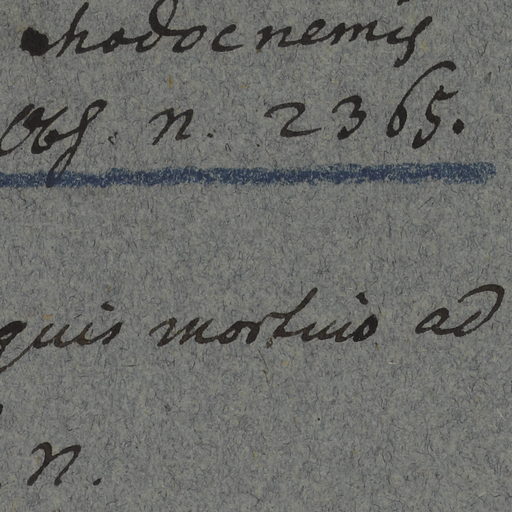 rhodocnemis
Obs. n. 2365.
quis mortuis ad
n.